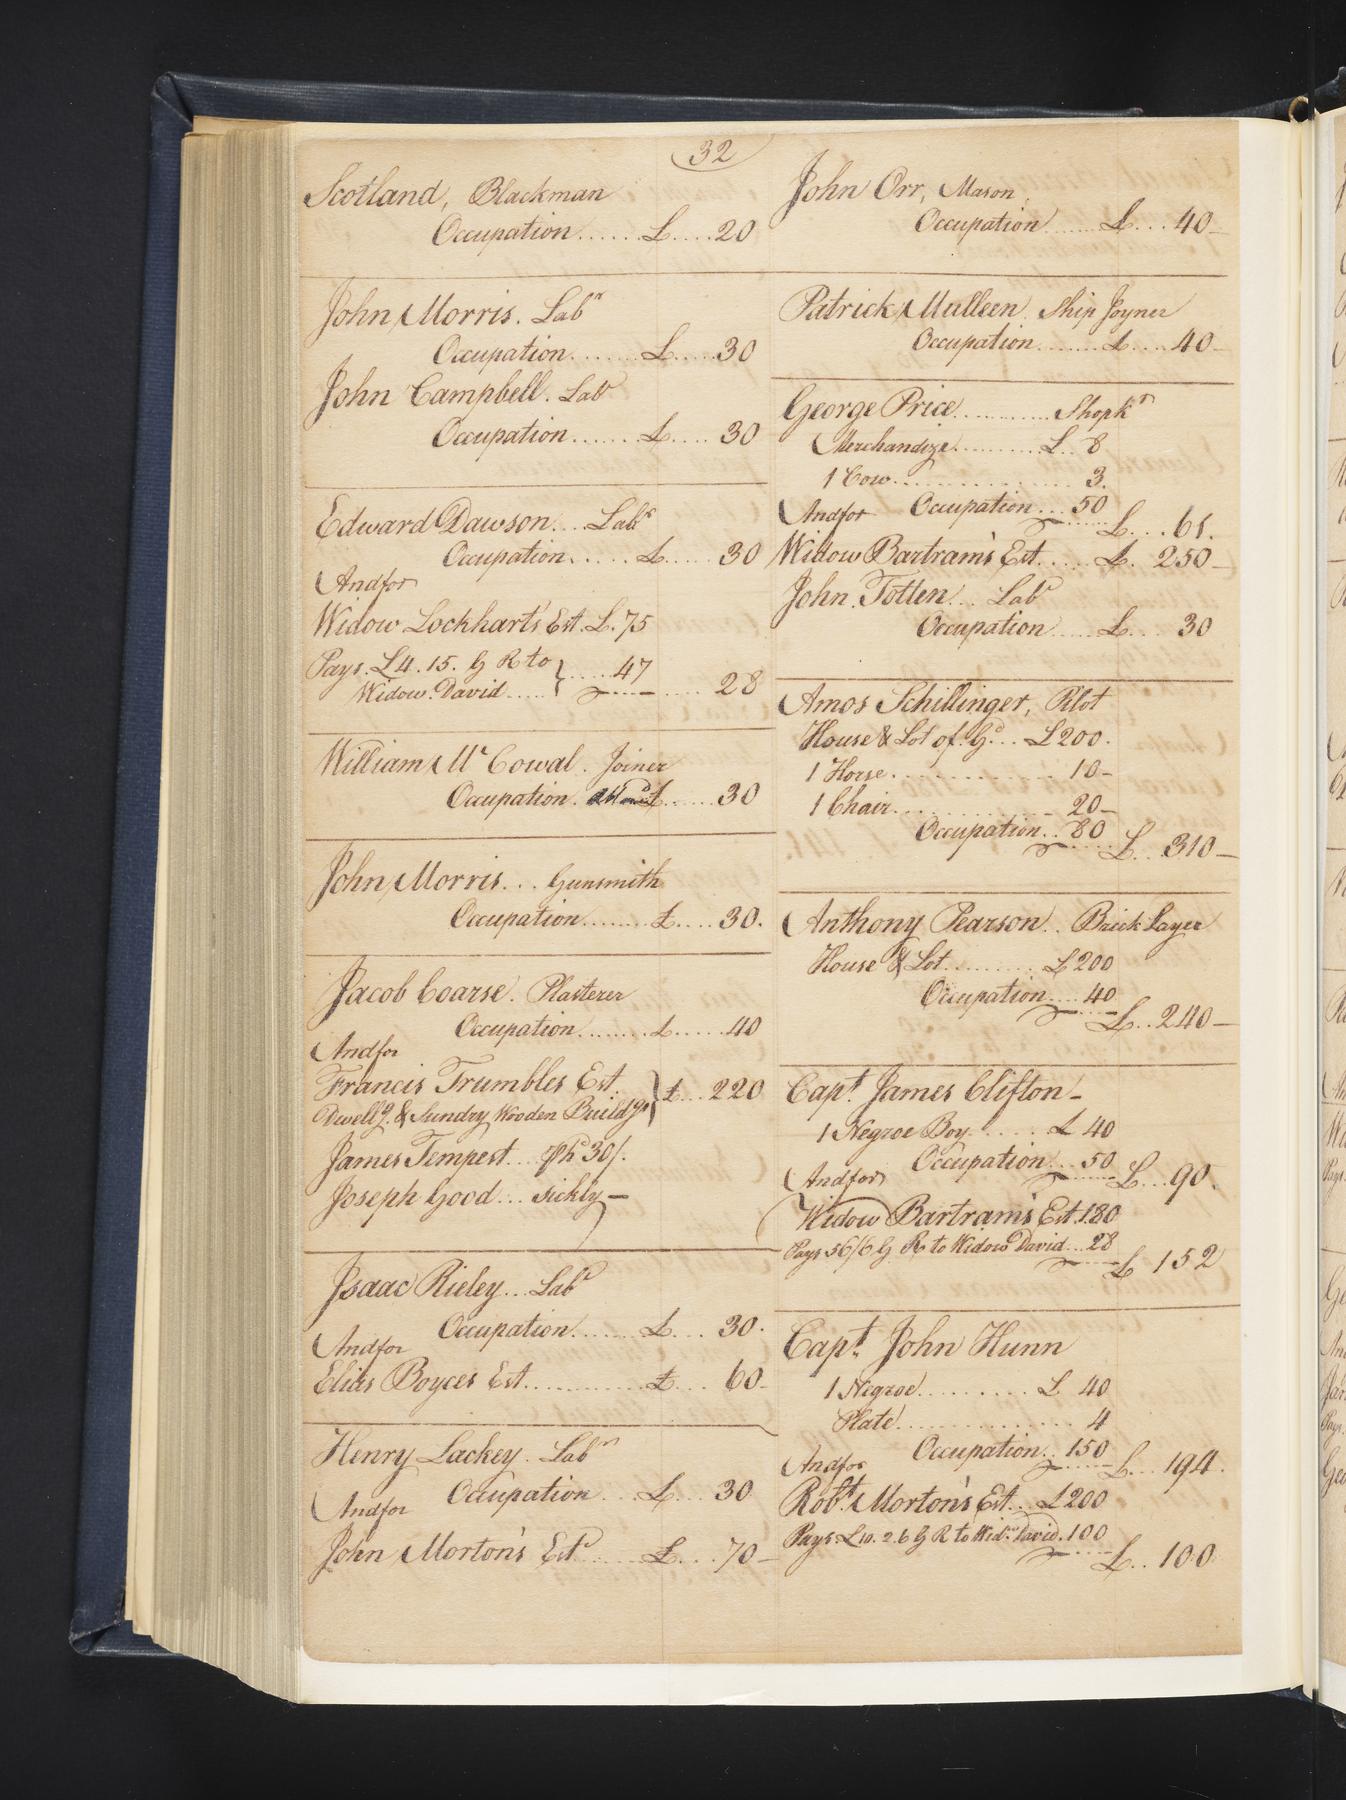 32
Scotland, Blackman
Occupation......£....20
John Morris. Labr
Occupation.......£.....30
John Campbell. Labr
Occupation......£....30
Edward Dawson... Labr
Occupation.....£....30
And for
Widow Lockharts Est. £.75
Pays. £4.15. G R to } .....47
Widow. David..... ....28
William McCowal. Joiner
Occupation. £.....30
John Morris... Gunsmith
Occupation.......£....30.
Jacob Coarse. Plasterer
Occupation.......£.....40
And for
Francis Trumbles Est. } £...220
Dwellg. & Sundry Wooden Buildgs
James Tempest... Ph 30/.
Joseph Good... sickly—
Isaac Rieley... Labr
Occupation......£... 30.
And for
Elias Boyces Est............£.... 60-
Henry Lackey. Labr
Occupation...£.... 30
And for
John Morton's Estd......£....70-
John Orr, Mason.
Occupation......£....40-
Patrick Mulleen. Ship Joyner
Occupation.......£....40-
George Price............Shopkr
Merchandize.........£ 8
1 Cow................ 3.
And for Occupation... 50
£...61.
Widow Bartram's Est.....£. 250-
John Totten... Labr
Occupation.....£... 30
Amos Schillinger, Pilot
House & Lot of Gd... £200.
1 Horse............. 10-
1 Chair............ 20-
Occupation.. 80
£... 310-
Anthony Pearson.. Brick Layer
House & Lot.........£200
Occupation.... 40
£...240-
Capt. James Clifton-
1 Negroe Boy......£ 40
Occupation... 50
And for £...90.
Widow Bartrams Est. 180
Pays 56/6 G R to Widow David...28
£ 152
Capt. John Hunn
1 Negroe.........£ 40
Plate............... 4
Occupation.. 150
And for £...194.
Robt. Morton's Est... £200
Pays £10.2.6 G R to Widw. David. 100
£...100